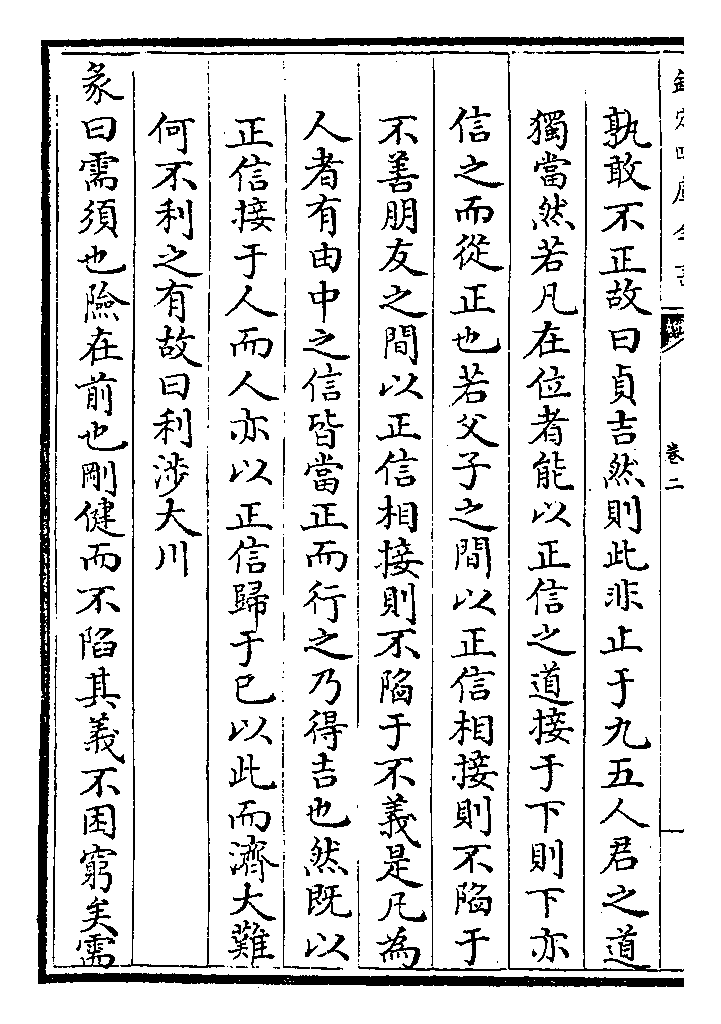 欽定四庫全書
卷二
孰敢不正故曰貞吉然則此非止于九五人君之道
獨當然若凡在位者能以正信之道接于下則下亦
信之而從正也若父子之間以正信相接則不陷于
不善朋友之間以正信相接則不陷于不義是凡為
人者有由中之信皆當正而行之乃得吉也然既以
正信接于人而人亦以正信歸于已以此而濟大難
何不利之有故曰利涉大川
彖曰需須也險在前也剛健而不陷其義不困窮矣需